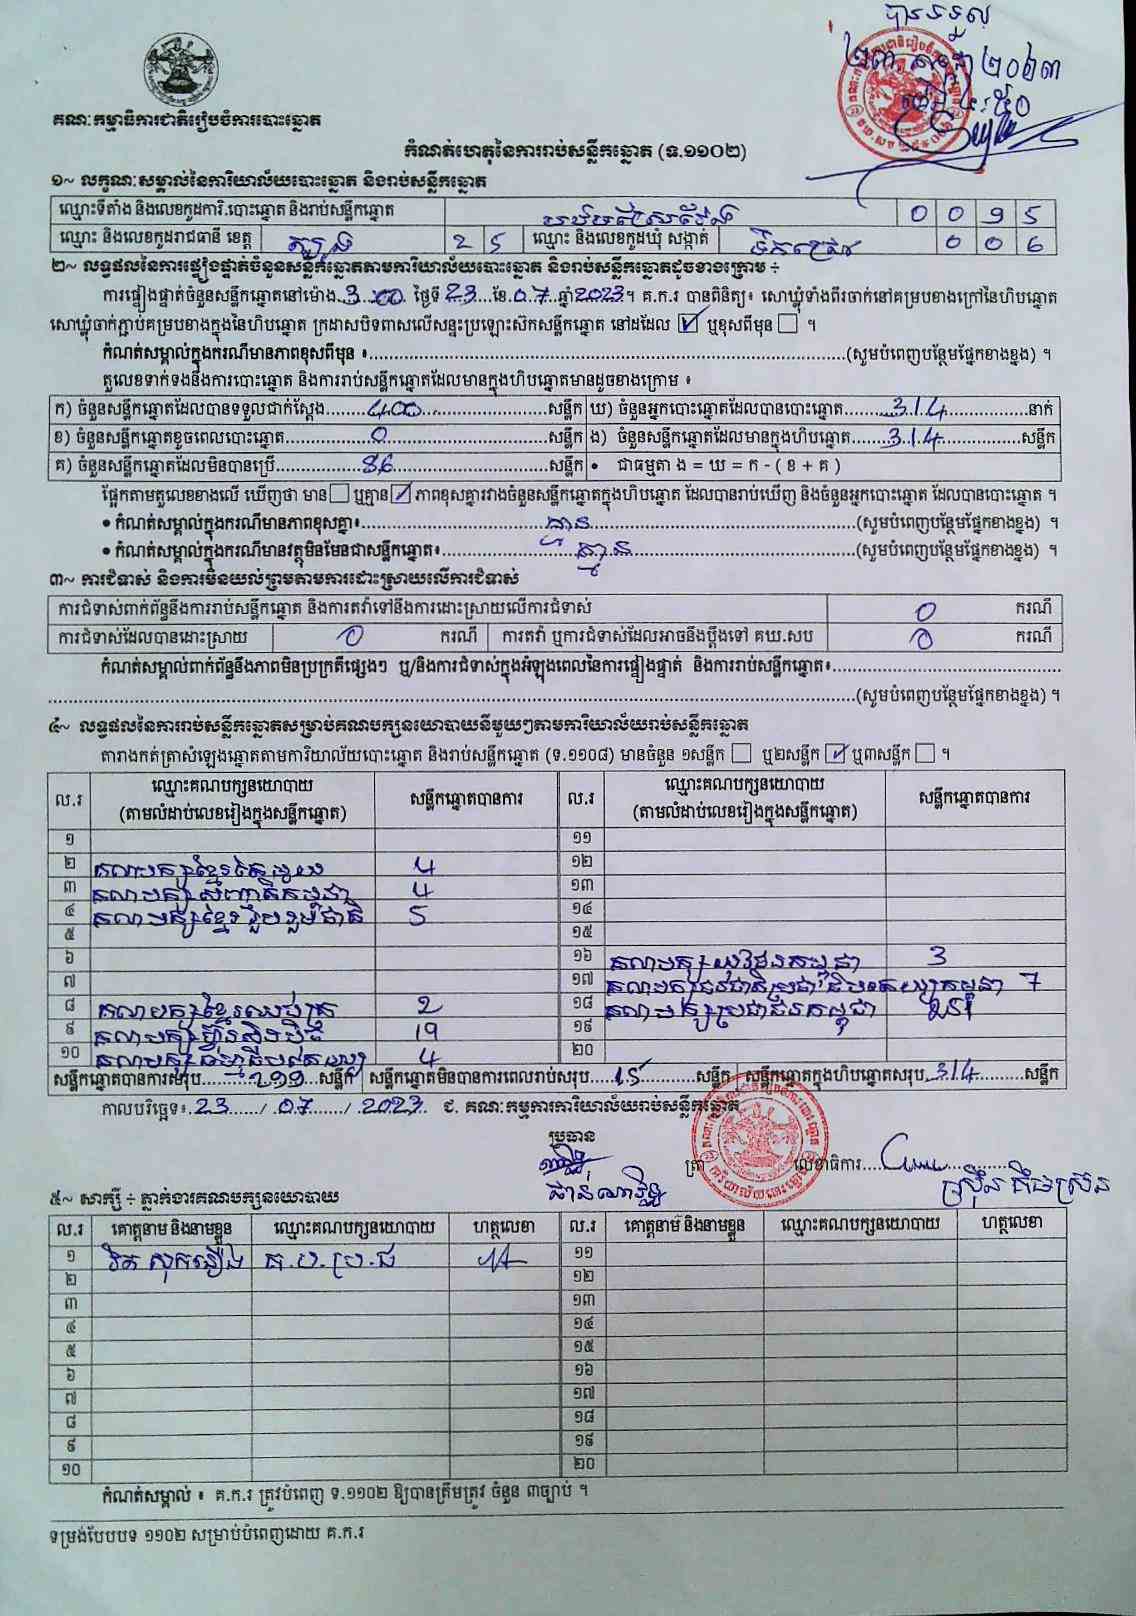 បានទទួល
២៣ កក្កដា ២០២៣
គណៈកម្មាធិការជាតិរៀបចំការបោះឆ្នោត
កំណត់ហេតុនៃការរាប់សន្លឹកឆ្នោត (ទ.១១០២)
១~ លក្ខណៈសម្គាល់នៃការិយាល័យបោះឆ្នោត និងរាប់សន្លឹកឆ្នោត
ឈ្មោះទីតាំង និងលេខកូដការិ.បោះឆ្នោត និងរាប់សន្លឹកឆ្នោត 0 0 9 5
ឈ្មោះ និងលេខកូដរាជធានី ខេត្ត ត្បូង 2 5 ឈ្មោះ និងលេខកូដឃុំ សង្កាត់ ទឹកជ្រៅ 0 0 6
២~ លទ្ធផលនៃការផ្ទៀងផ្ទាត់ចំនួនសន្លឹកឆ្នោតតាមការិយាល័យបោះឆ្នោត និងរាប់សន្លឹកឆ្នោតដូចខាងក្រោម ÷
ការផ្ទៀងផ្ទាត់ចំនួនសន្លឹកឆ្នោតនៅម៉ោង 3 : 00 ថ្ងៃទី 23 ខែ 07 ឆ្នាំ 2023 ។ គ.ក.រ បានពិនិត្យ៖ សោឃ្លុំទាំងពីរចាក់នៅគម្របខាងក្រៅនៃហិបឆ្នោត
សោឃ្លុំចាក់ភ្ជាប់គម្របខាងក្នុងនៃហិបឆ្នោត ក្រដាសបិទពាសលើសន្ទះប្រឡោះស៊កសន្លឹកឆ្នោត នៅដដែល ☑ ឬខុសពីមុន ☐ ។
កំណត់សម្គាល់ក្នុងករណីមានភាពខុសពីមុន ៖ (សូមបំពេញបន្ថែមផ្នែកខាងខ្នង) ។
តួលេខទាក់ទងនឹងការបោះឆ្នោត និងការរាប់សន្លឹកឆ្នោតដែលមានក្នុងហិបឆ្នោតមានដូចខាងក្រោម ៖
ក) ចំនួនសន្លឹកឆ្នោតដែលបានទទួលជាក់ស្តែង 400 សន្លឹក ឃ) ចំនួនអ្នកបោះឆ្នោតដែលបានបោះឆ្នោត 314 នាក់
ខ) ចំនួនសន្លឹកឆ្នោតខូចពេលបោះឆ្នោត 0 សន្លឹក ង) ចំនួនសន្លឹកឆ្នោតដែលមានក្នុងហិបឆ្នោត 314 សន្លឹក
គ) ចំនួនសន្លឹកឆ្នោតដែលមិនបានប្រើ 86 សន្លឹក • ជាធម្មតា ង = ឃ = ក - ( ខ + គ )
ផ្អែកតាមតួលេខខាងលើ ឃើញថា មាន ☐ ឬគ្មាន ☑ ភាពខុសគ្នារវាងចំនួនសន្លឹកឆ្នោតក្នុងហិបឆ្នោត ដែលបានរាប់ឃើញ និងចំនួនអ្នកបោះឆ្នោត ដែលបានបោះឆ្នោត ។
• កំណត់សម្គាល់ក្នុងករណីមានភាពខុសគ្នា៖ គ្មាន (សូមបំពេញបន្ថែមផ្នែកខាងខ្នង) ។
• កំណត់សម្គាល់ក្នុងករណីមានវត្ថុមិនមែនជាសន្លឹកឆ្នោត៖ គ្មាន (សូមបំពេញបន្ថែមផ្នែកខាងខ្នង) ។
៣~ ការជំទាស់ និងការមិនយល់ព្រមតាមការដោះស្រាយលើការជំទាស់
ការជំទាស់ពាក់ព័ន្ធនឹងការរាប់សន្លឹកឆ្នោត និងការតវ៉ាទៅនឹងការដោះស្រាយលើការជំទាស់ 0 ករណី
ការជំទាស់ដែលបានដោះស្រាយ 0 ករណី ការតវ៉ា ឬការជំទាស់ដែលអាចនឹងប្តឹងទៅ គឃ.សប 0 ករណី
កំណត់សម្គាល់ពាក់ព័ន្ធនឹងភាពមិនប្រក្រតីផ្សេងៗ ឬ/និងការជំទាស់ក្នុងអំឡុងពេលនៃការផ្ទៀងផ្ទាត់ និងការរាប់សន្លឹកឆ្នោត៖
(សូមបំពេញបន្ថែមផ្នែកខាងខ្នង) ។
៤~ លទ្ធផលនៃការរាប់សន្លឹកឆ្នោតសម្រាប់គណបក្សនយោបាយនីមួយៗតាមការិយាល័យរាប់សន្លឹកឆ្នោត
តារាងកត់ត្រាសំឡេងឆ្នោតតាមការិយាល័យបោះឆ្នោត និងរាប់សន្លឹកឆ្នោត (ទ.១១០៨) មានចំនួន ១សន្លឹក ☐ ឬ២សន្លឹក ☑ ឬ៣សន្លឹក ☐ ។
ល.រ ឈ្មោះគណបក្សនយោបាយ (តាមលំដាប់លេខរៀងក្នុងសន្លឹកឆ្នោត) សន្លឹកឆ្នោតបានការ ល.រ ឈ្មោះគណបក្សនយោបាយ (តាមលំដាប់លេខរៀងក្នុងសន្លឹកឆ្នោត) សន្លឹកឆ្នោតបានការ
១ ១១
២ គណបក្សខ្មែរតែមួយ 4 ១២
៣ គណបក្សសញ្ជាតិកម្ពុជា 4 ១៣
៤ គណបក្សខ្មែររួបរួមជាតិ 5 ១៤
៥ ១៥
៦ ១៦ គណបក្សយុវជនកម្ពុជា 3
៧ ១៧ 7
៨ 2 ១៨ គណបក្សប្រជាជនកម្ពុជា
៩ គណបក្សហ៊្វុនស៊ិនប៉ិច 19 ១៩
១០ គណបក្សធម្មាធិបតេយ្យ 4 ២០
សន្លឹកឆ្នោតបានការសរុប 299 សន្លឹក សន្លឹកឆ្នោតមិនបានការពេលរាប់សរុប 15 សន្លឹក សន្លឹកឆ្នោតក្នុងហិបឆ្នោតសរុប 314 សន្លឹក
កាលបរិច្ឆេទ៖ 23 / 07 / 2023 . ជ. គណៈកម្មការការិយាល័យរាប់សន្លឹកឆ្នោត
ប្រធាន
ត្រា លេខាធិការ
៥~ សាក្សី ÷ ភ្នាក់ងារគណបក្សនយោបាយ
ល.រ គោត្តនាម និងនាមខ្លួន ឈ្មោះគណបក្សនយោបាយ ហត្ថលេខា ល.រ គោត្តនាម និងនាមខ្លួន ឈ្មោះគណបក្សនយោបាយ ហត្ថលេខា
១ គ.ប.ប្រ.ជ ១១
២ ១២
៣ ១៣
៤ ១៤
៥ ១៥
៦ ១៦
៧ ១៧
៨ ១៨
៩ ១៩
១០ ២០
កំណត់សម្គាល់ ៖ គ.ក.រ ត្រូវបំពេញ ទ.១១០២ ឱ្យបានត្រឹមត្រូវ ចំនួន ៣ច្បាប់ ។
ទម្រង់បែបបទ ១១០២ សម្រាប់បំពេញដោយ គ.ក.រ